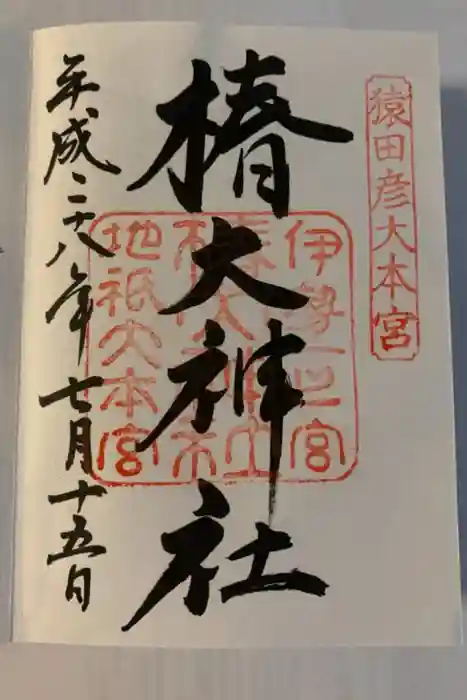 猿田彦大本宮
伊勢一之宮
椿大神社
地祇大本宮
椿大神社
平成二十八年七月十五日